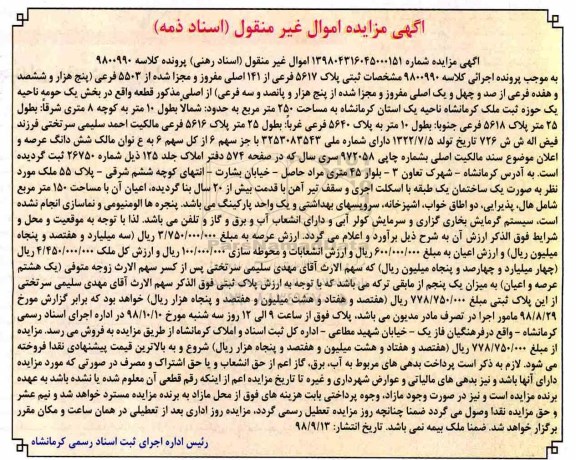 آگهی مزایده اموال غیر منقول (اسناد ذمه)
آگهی مزایده شماره ۱۳۹۸۰۴۳۱۶۰۴۵۰۰۰۱۵۱ اموال غیر منقول (اسناد رهنی) پرونده کلاسه ۹۸۰۰۹۹۰
به موجب پرونده اجرائی کلاسه ۹۸۰۰۹۹۰ مشخصات ثبتی پلاک ۵۶۱۷ فرعی از ۱۴۱ اصلی مفروز و مجزا شده از ۵۵۰۳ فرعی (پنج هزار و ششصد
و هفده فرعی از صد و چهل و یک اصلی مفروز و مجزا شده از پنج هزار و پانصد و سه فرعی) از اصلی مذکور قطعه واقع در بخش یک حومه ناحیه
یک حوزه ثبت ملک کرمانشاه ناحیه یک استان کرمانشاه به مساحت ۲۵۰ متر مربع به حدود: شمالا بطول ۱۰ متر به کوچه ۸ متری شرقاً: بطول
۲۵ متر پلاک ۵۶۱۸ فرعی جنوبا: بطول ۱۰ متر به پلاک ۵۶۴۰ فرعی غرباً: بطول ۲۵ متر پلاک ۵۶۱۶ فرعی مالکیت احمد سلیمی سرتختی فرزند
فیض اله ش ش ۷۲۶ تاریخ تولد ۱۳۲۲/۷/۵ دارای شماره ملی ۳۲۵۳۰۸۳۵۴۳ با جز سهم ۶ از کل سهم ۶ به ع نوان مالک شش دانگ عرصه و
اعلان موضوع سند مالکیت اصلی بشماره چاپی ۹۷۲۰۵۸ سری سال که در صفحه ۵۷۴ دفتر املاک جلد ۱۲۵ ذیل شماره ۲۶۷۵۰ ثبت گردیده
است. به آدرس کرمانشاه - شهرک تعاون ۳ - بلوار ۴۵ متری مراد حاصل - خیابان بشارت - انتهای کوچه ششم شرقی - پلاک ۵۵ ملک مورد
نظر به صورت یک ساختمان یک طبقه با اسکلت آجری و سقف تیر آهن با قدمت بیش از ۲۰ سال بنا گردیده، اعیان آن با مساحت ۱۵۰ متر مربع
شامل هال، پذیرایی، دو اطاق خواب، آشپزخانه، سرویسهای بهداشتی و یک واحد پارکینگ می باشد. پنجره ها الومنیومی و نماسازی انجام نشده
است، سیستم گرمایش بخاری گازی و سرمایش کولر آبی و دارای انشعاب آب و برق و گاز و تلفن می باشد. لذا با توجه به موقعیت و محل و
شرایط فوق الذکر ارزش آن به شرح ذیل برآورد و اعلام می گردد. ارزش عرصه به مبلغ ۳/۷۵۰/۰۰۰/۰۰۰ ریال (سه میلیارد و هفتصد و پنجاه
میلیون ریال) و ارزش اعیان به مبلغ ۶۰۰/۰۰۰/۰۰۰ ریال و ارزش انشعابات و محوطه سازی ۱۰۰/۰۰۰/۰۰۰ ریال و ارزش کل ملک ۴/۴۵۰/۰۰۰/۰۰۰ ریال
(چهار میلیارد و چهارصد و پنجاه میلیون ریال) که سهم الارث آقای مهدی سلیمی سرتختی پس از کسر سهم الارث زوجه متوفی (یک هشتم
عرصه و اعیان) به میزان یک پنجم از مابقی ترکه می باشد که با توجه به ارزش پلاک ثبتی فوق الذکر سهم الارث آقای مهدی سلیمی سرتختی
از این پلاک ثبتی مبلغ ۷۷۸/۷۵۰/۰۰۰ ریال (هفتصد و هفتاد و هشت میلیون و هفتصد و پنجاه هزار ریال) خواهد بود که برابر گزارش مورخ
۹۸/۸/۲۹ مامور اجرا در تصرف مادر مدیون می باشد، پلاک فوق از ساعت ۹ الی ۱۲ روز سه شنبه مورخ ۹۸/۱۰/۱۰ در اداره اجرای اسناد رسمی
کرمانشاه - واقع درفرهنگیان فاز یک - خیابان شهید مطاعی - اداره کل ثبت اسناد و املاک کرمانشاه از طریق مزایده به فروش می رسد. مزایده
از مبلغ ۷۷۸/۷۵۰/۰۰۰ ریال (هفتصد و هفتاد و هشت میلیون و هفتصد و پنجاه هزار ریال) شروع و به بالاترین قیمت پیشنهادی نقدا فروخته
می شود. لازم به ذکر است پرداخت بدهی های مربوط به آب، برق، گاز اعم از حق انشعاب و یا حق اشتراک و مصرف در صورتی که مورد مزایده
دارای آنها باشد و نیز بدهی های مالیاتی و عوارض شهرداری و غیره تا تاریخ مزایده اعم از اینکه رقم قطعی آن معلوم شده یا نشده باشد به عهده
برنده مزایده است و نیز در صورت وجود مازاد، وجوه پرداختی بابت هزینه های فوق از محل مازاد به برنده مزایده مسترد خواهد شد و نیم عشر
و حق مزایده نقدا وصول می گردد ضمنا چنانچه روز مزایده تعطیل رسمی گردد، مزایده روز اداری بعد از تعطیلی در همان ساعت و مکان مقرر
برگزار خواهد شد. ضمنا ملک بیمه نمی باشد. تاریخ انتشار: ۹۸/۹/۱۳
رئیس اداره اجرای ثبت اسناد رسمی کرمانشاه